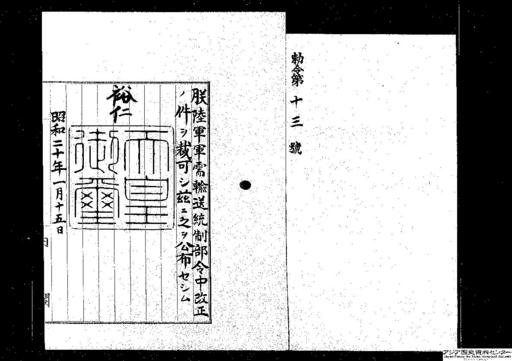 勅令第十三號
朕陸軍軍需輸送統制部令中改正
ノ件ヲ裁可シ茲ニ之ヲ公布セシム
裕仁
天皇
御璽
昭和二十年一月十五日
内閣
アジア歴史資料センター